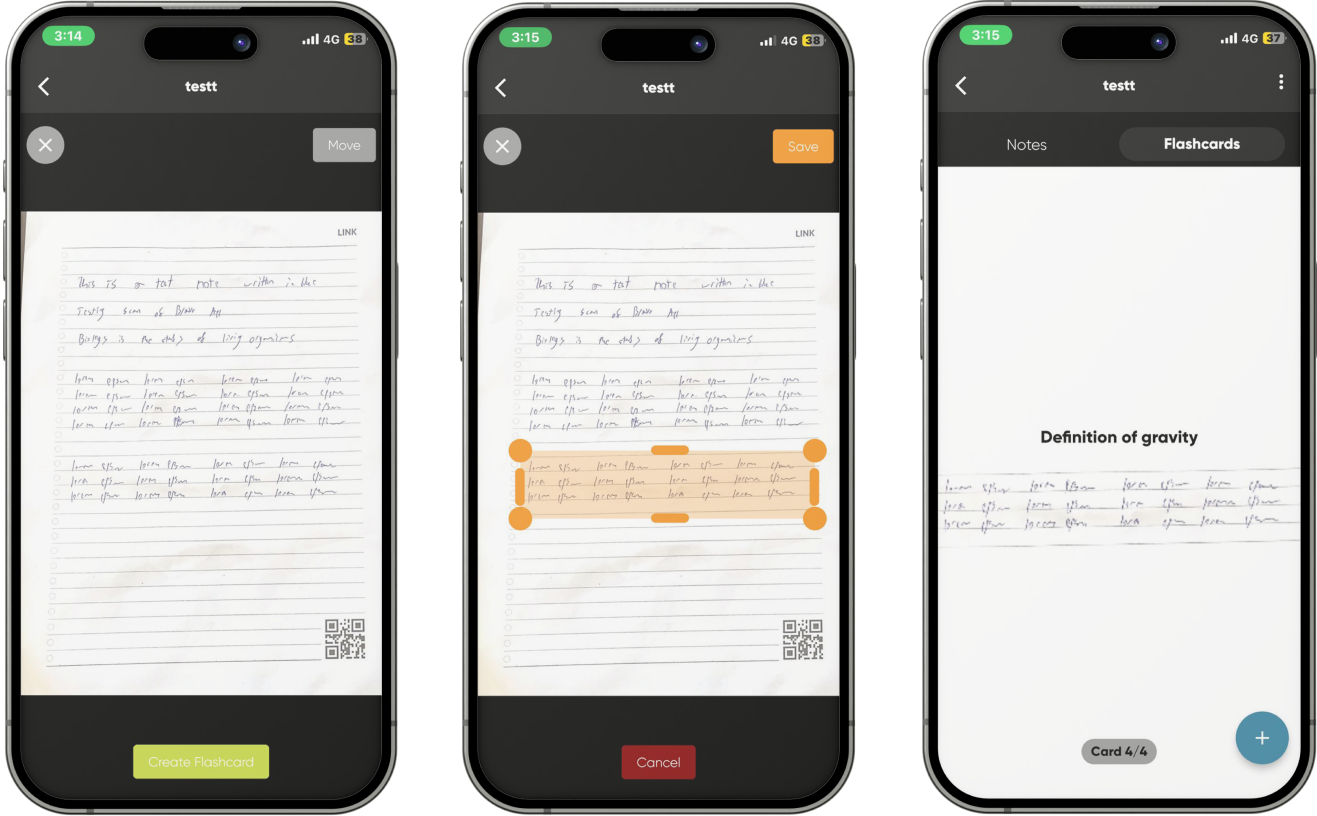 3:14
4G 38
testt
Move
LINK
This is a test note written in the
Testing scan of
Biology is the study of living organisms
lorem epsum lorem epsum lorem epsum lorem epsum
lorem epsum lorem epsum lorem epsum lorem epsum
lorem epsum lorem epsum lorem epsum lorem epsum
lorem epsum lorem epsum lorem epsum lorem epsum
lorem epsum lorem epsum lorem epsum lorem epsum
lorem epsum lorem epsum lorem epsum lorem epsum
lorem epsum lorem epsum lorem epsum lorem epsum
Create Flashcard
3:15
4G 38
testt
Save
LINK
This is a test note written in the
Testing scan of
Biology is the study of living organisms
lorem epsum lorem epsum lorem epsum lorem epsum
lorem epsum lorem epsum lorem epsum lorem epsum
lorem epsum lorem epsum lorem epsum lorem epsum
lorem epsum lorem epsum lorem epsum lorem epsum
lorem epsum lorem epsum lorem epsum lorem epsum
lorem epsum lorem epsum lorem epsum lorem epsum
lorem epsum lorem epsum lorem epsum lorem epsum
Cancel
3:15
4G 37
testt
Notes Flashcards
Definition of gravity
lorem epsum lorem epsum lorem epsum lorem epsum
lorem epsum lorem epsum lorem epsum lorem epsum
lorem epsum lorem epsum lorem epsum lorem epsum
Card 4/4